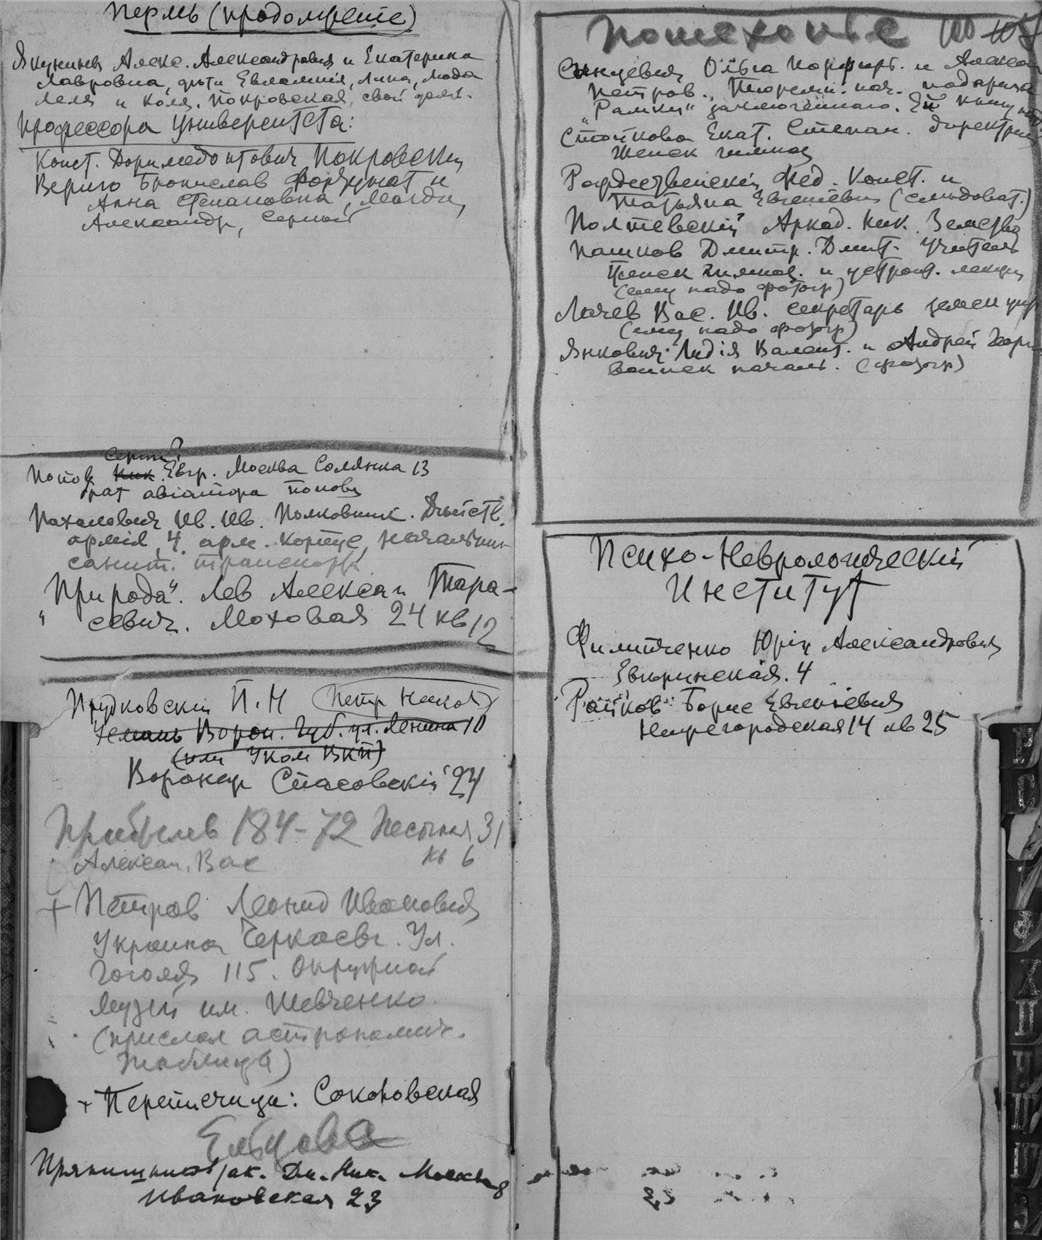 Пермь (продолжение)
Якунины Алекс. Александровия и Екатерина
Лавровна, дети Евлампия, Лина, Мода
Леля и Коля. Покровская, свой дом.
Профессора Университета:
Конст. Доримедонтович Покровский
Вериго Бронислав Фортунат и
Анна Степановна, Магда,
Александр, Сергей
Серги?
Попов Ник. Евгр. Москва Солянка 13
брат авіатора Попова
Пахалович Ив. Ив. Полковник. Дѣйств.
армія, 4 арм. корпус, начальник
санит. транспорта
"Природа". Лев Алексан Тара-
севич. Моховая 24 кв 12
Прудковскій П. Н (Петр Никол)
Усмань Ворон. Губ. ул. Ленина 10
(или Уком ВКП)
Воронеж Спасовскій 24
Прибылев 184-72 Песочная 31
Алексан. Вас кв 6
+ Петров Леонид Иванович
Украина Черкассы. Ул.
Гоголя 115. Окружной
музей им. Шевченко
(прислал астрономич.
таблицы)
+ Переписчица: Соколовская
Ельцова
Прянишников ак. Дм. Ник. Москва
Ивановская 23
Пошехонье 100 107
Ольга Порфир. и Алексан
Петров., Тюремн. нач. подарила
"Рамки" заключенного. Ей книгу
Стойкова Екат. Степан. директриса
Женск гимназ
Рождественскій Фед. Конст. и
Татьяна Евгеніевна (следоват.)
Полтевскій Аркад. Ник. Земство
Пашков Дмитр. Дмит. Учитель
Женск Гимназ. и устроит. лекции
(ему надо фотогр)
Лачев Вас. Ив. секретарь земск упр
(ему надо фотогр)
Янкович Лидія Валент. и Андрей Георг
воинск началь. (фотогр)
Психо-Неврологическій
Институт
Филипченко Юрій Александрович
Звѣринская. 4
Райков Борис Евгеніевич
Нижегородская 14 кв 25